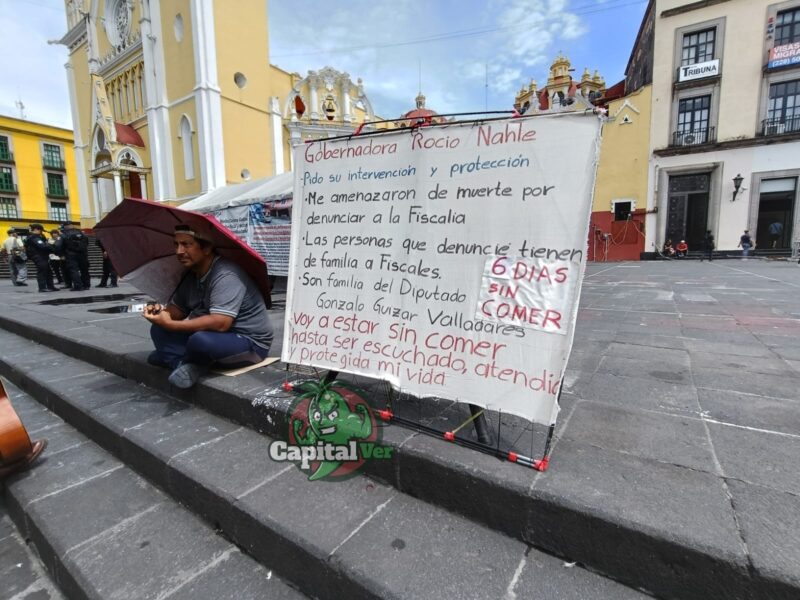 Gobernadora Rocio Nahle
·Pido su intervencion y protección
·Me amenazaron de muerte por
denunciar a la Fiscalia
·Las personas que denuncie tienen
de familia a Fiscales.
·Son familia del Diputado
Gonzalo Guizar Valladares
6 DIAS
SIN
COMER
voy a estar sin comer
hasta ser escuchado, atendido
y protegida mi vida
TRIBUNA
VISAS
CapitalVer